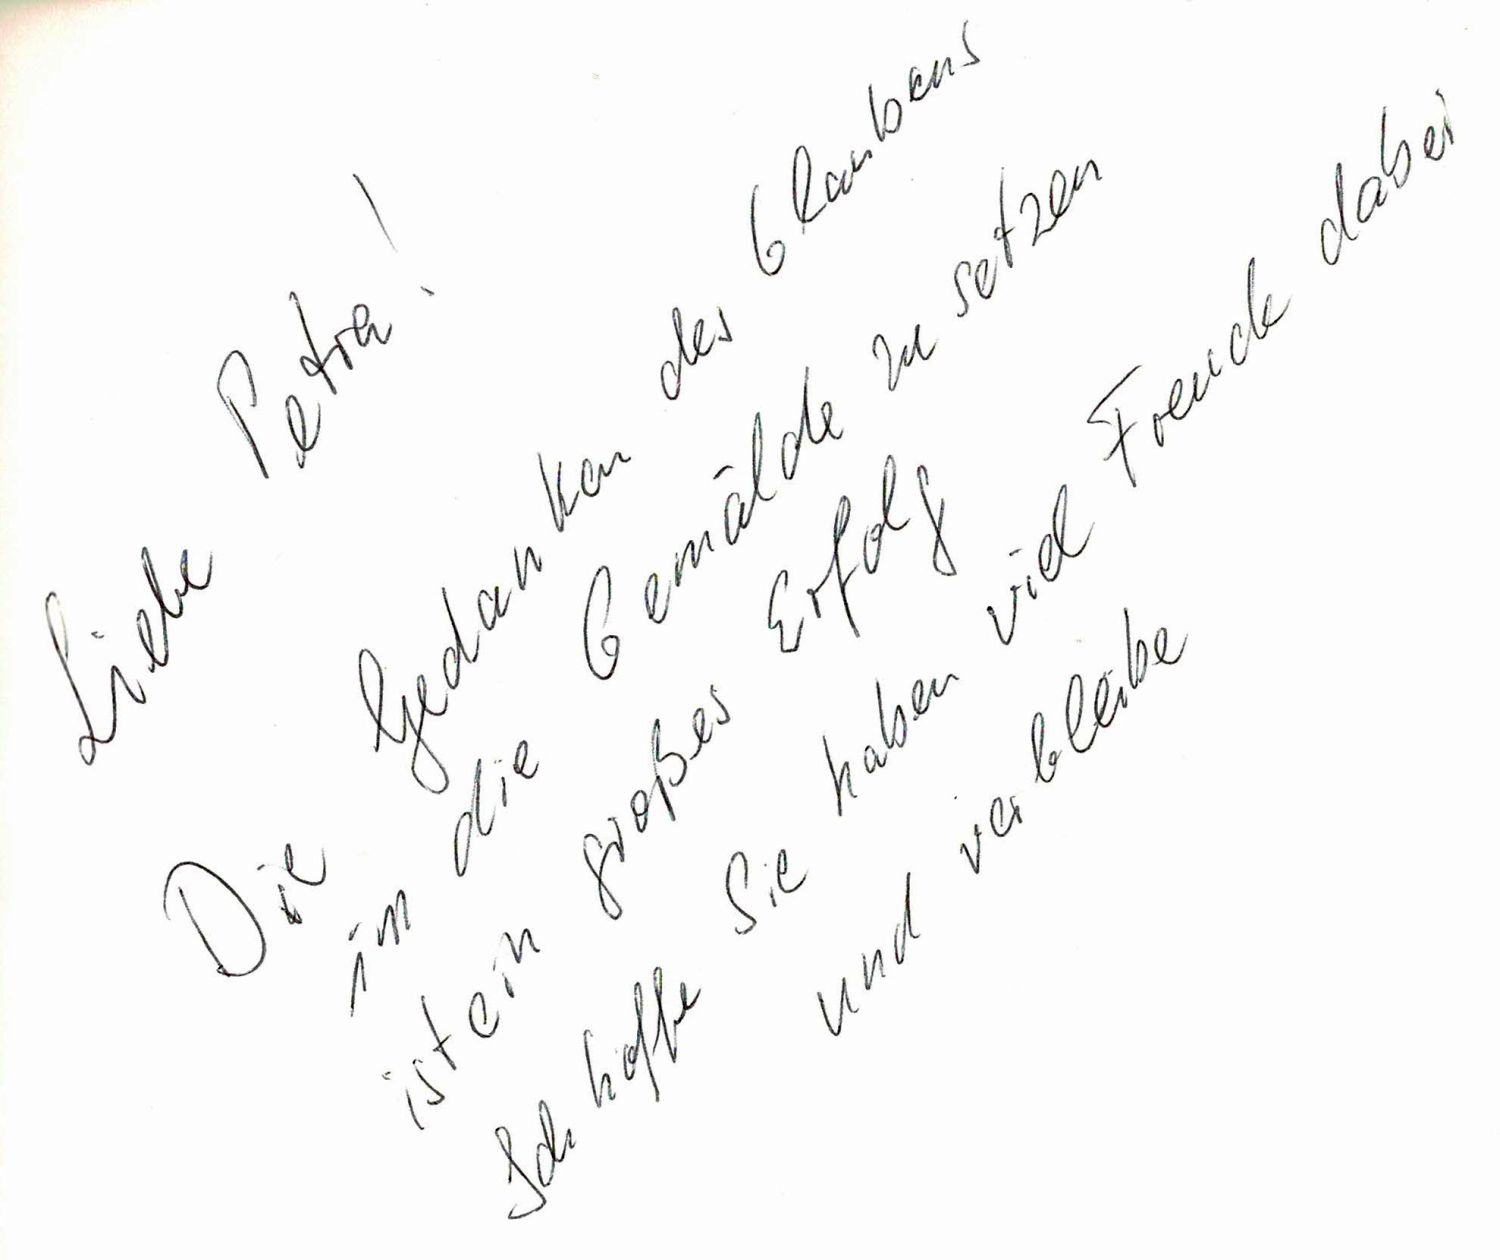 Liebe Petra!
Die Gedanken des Glaubens
in die Gemälde zu setzen
ist ein großes Erfolg
Ich hoffe Sie haben viel Freude dabei
und verbleibe